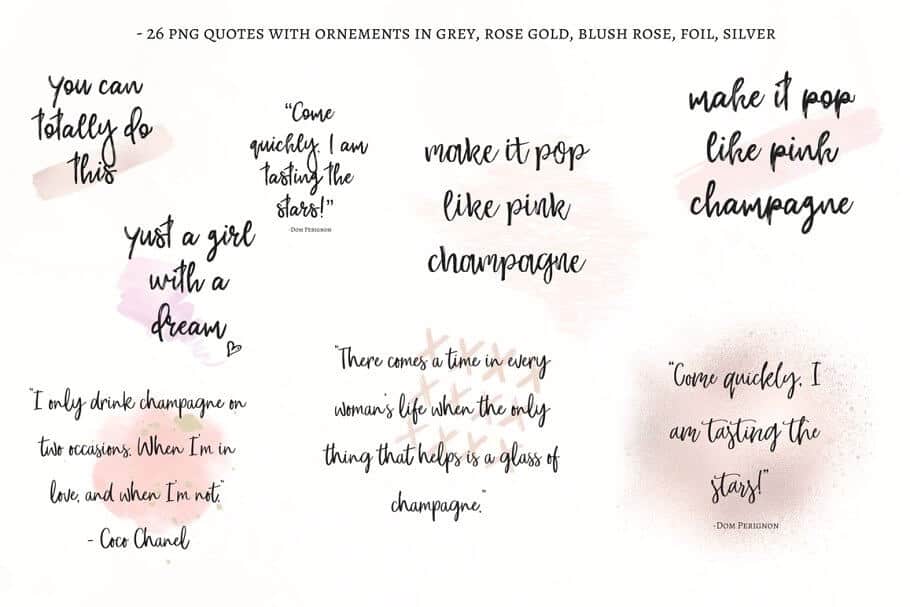 - 26 PNG QUOTES WITH ORNEMENTS IN GREY, ROSE GOLD, BLUSH ROSE, FOIL, SILVER
You can
totally do
this
"Come
quickly, I am
tasting the
stars!"
-Dom Perignon
make it pop
like pink
champagne
make it pop
like pink
champagne
Yust a girl
with a
dream
"I only drink champagne on
two occasions. When I'm in
love, and when I'm not."
- Coco Chanel
"There comes a time in every
woman's life when the only
thing that helps is a glass of
champagne."
"Come quickly, I
am tasting the
stars!"
-Dom Perignon